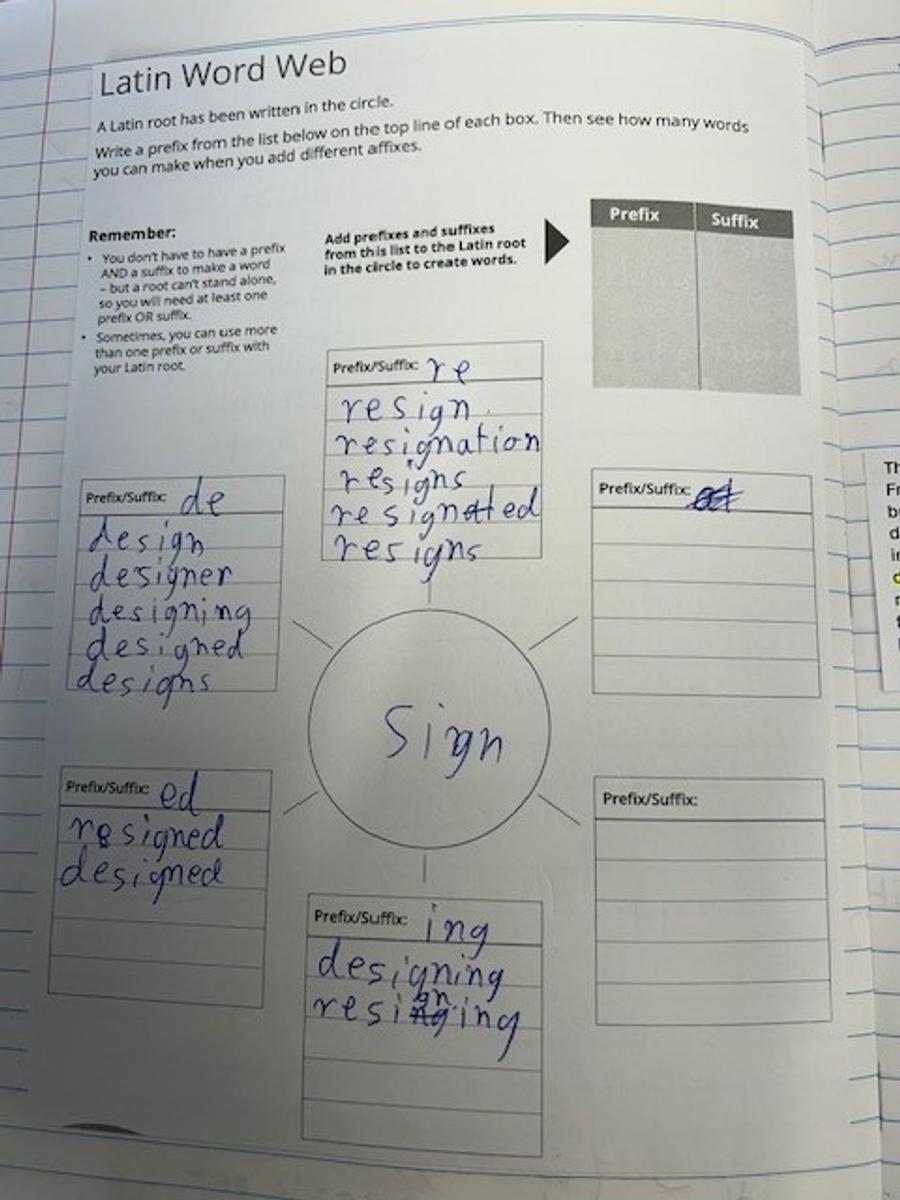 Latin Word Web
A Latin root has been written in the circle.
Write a prefix from the list below on the top line of each box. Then see how many words
you can make when you add different affixes.
Remember:
• You don't have to have a prefix
AND a suffix to make a word
– but a root can't stand alone,
so you will need at least one
prefix OR suffix.
• Sometimes, you can use more
than one prefix or suffix with
your Latin root.
Add prefixes and suffixes
from this list to the Latin root
in the circle to create words.
Prefix Suffix
Prefix/Suffix: re
resign
resignation
resigns
resignatted
resigns
Prefix/Suffix: de
design
designer
designing
designed
designs
Prefix/Suffix:
Sign
Prefix/Suffix: ed
resigned
designed
Prefix/Suffix: ing
designing
resigning
Prefix/Suffix: